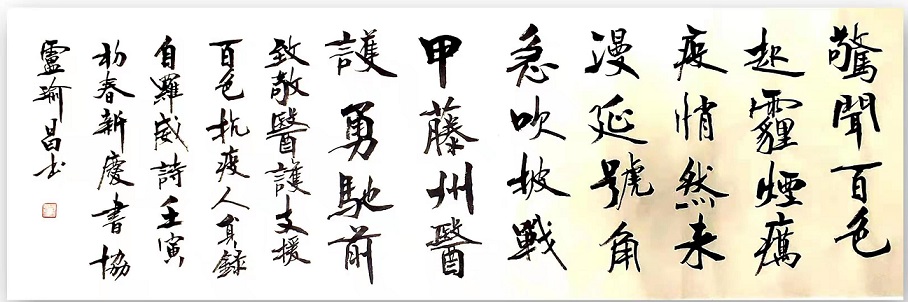 驚聞百色
起霾煙癘
疫悄然来
漫延號角
急吹披戰
甲藤州醫
護勇馳前
致敬醫護支援
百色抗疫人員錄
自羅威詩壬寅
初春新慶書協
盧瑜昌书